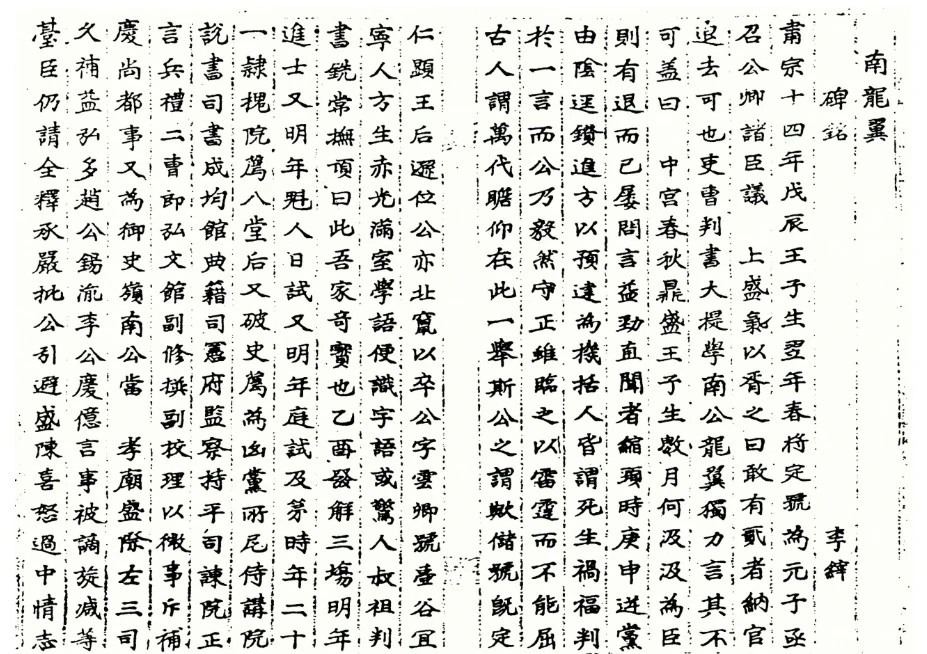 南龍翼
碑銘　李縡
肅宗十四年戊辰王子生翌年春將定號為元子亟
召公卿諸臣議　上盛氣以胥之曰敢有貳者納官
退去可也吏曹判書大提學南公龍翼獨力言其不
可盖曰　中宮春秋鼎盛王子生數月何汲汲為臣
則有退而已屢問言益勁直聞者縮頸時庚申送黨
由陰逕鑽進方以預建為機括人皆謂死生禍福判
於一言而公乃毅然守正雖臨之以雷霆而不能屈
古人謂萬代瞻仰在此一舉斯公之謂歟儲號旣定
仁顯王后遜位公亦北竄以卒公字雲卿號壺谷宜
寧人方生赤光滿室學語便識字語或驚人叔祖判
書銑常撫頂曰此吾家奇寶也乙酉發解三場明年
進士又明年魁人日試又明年庭試及第時年二十
一隷槐院薦八堂后又破史薦為凶黨所尼侍講院
說書司書成均館典籍司憲府監察持平司諫院正
言兵禮二曹郎弘文館副修撰副校理以微事斥補
慶尚都事又為御史嶺南公當　孝廟盛際左三司
久補益弘多趙公錫胤李公慶億言事被謫旋减等
臺臣仍請全釋承嚴批公引避盛陳喜怒過中情志